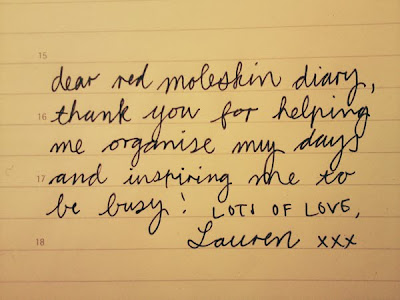 15
dear red moleskin diary,
16 thank you for helping
me organise my days
17 and inspiring me to
be busy! LOTS OF LOVE,
18 Lauren xxx